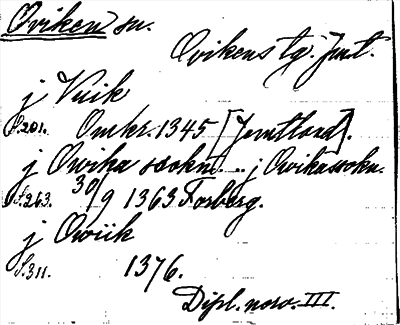 Oviken sn.
Ovikens tg. Jmt.
j Vuik
S.201. Omkr. 1345 [Jemtland].
j Owika sookn... j Owikassokn.
S.263. 30/9 1363. Forberg.
j Owiik
S.311. 1376.
Dipl. norv. III.